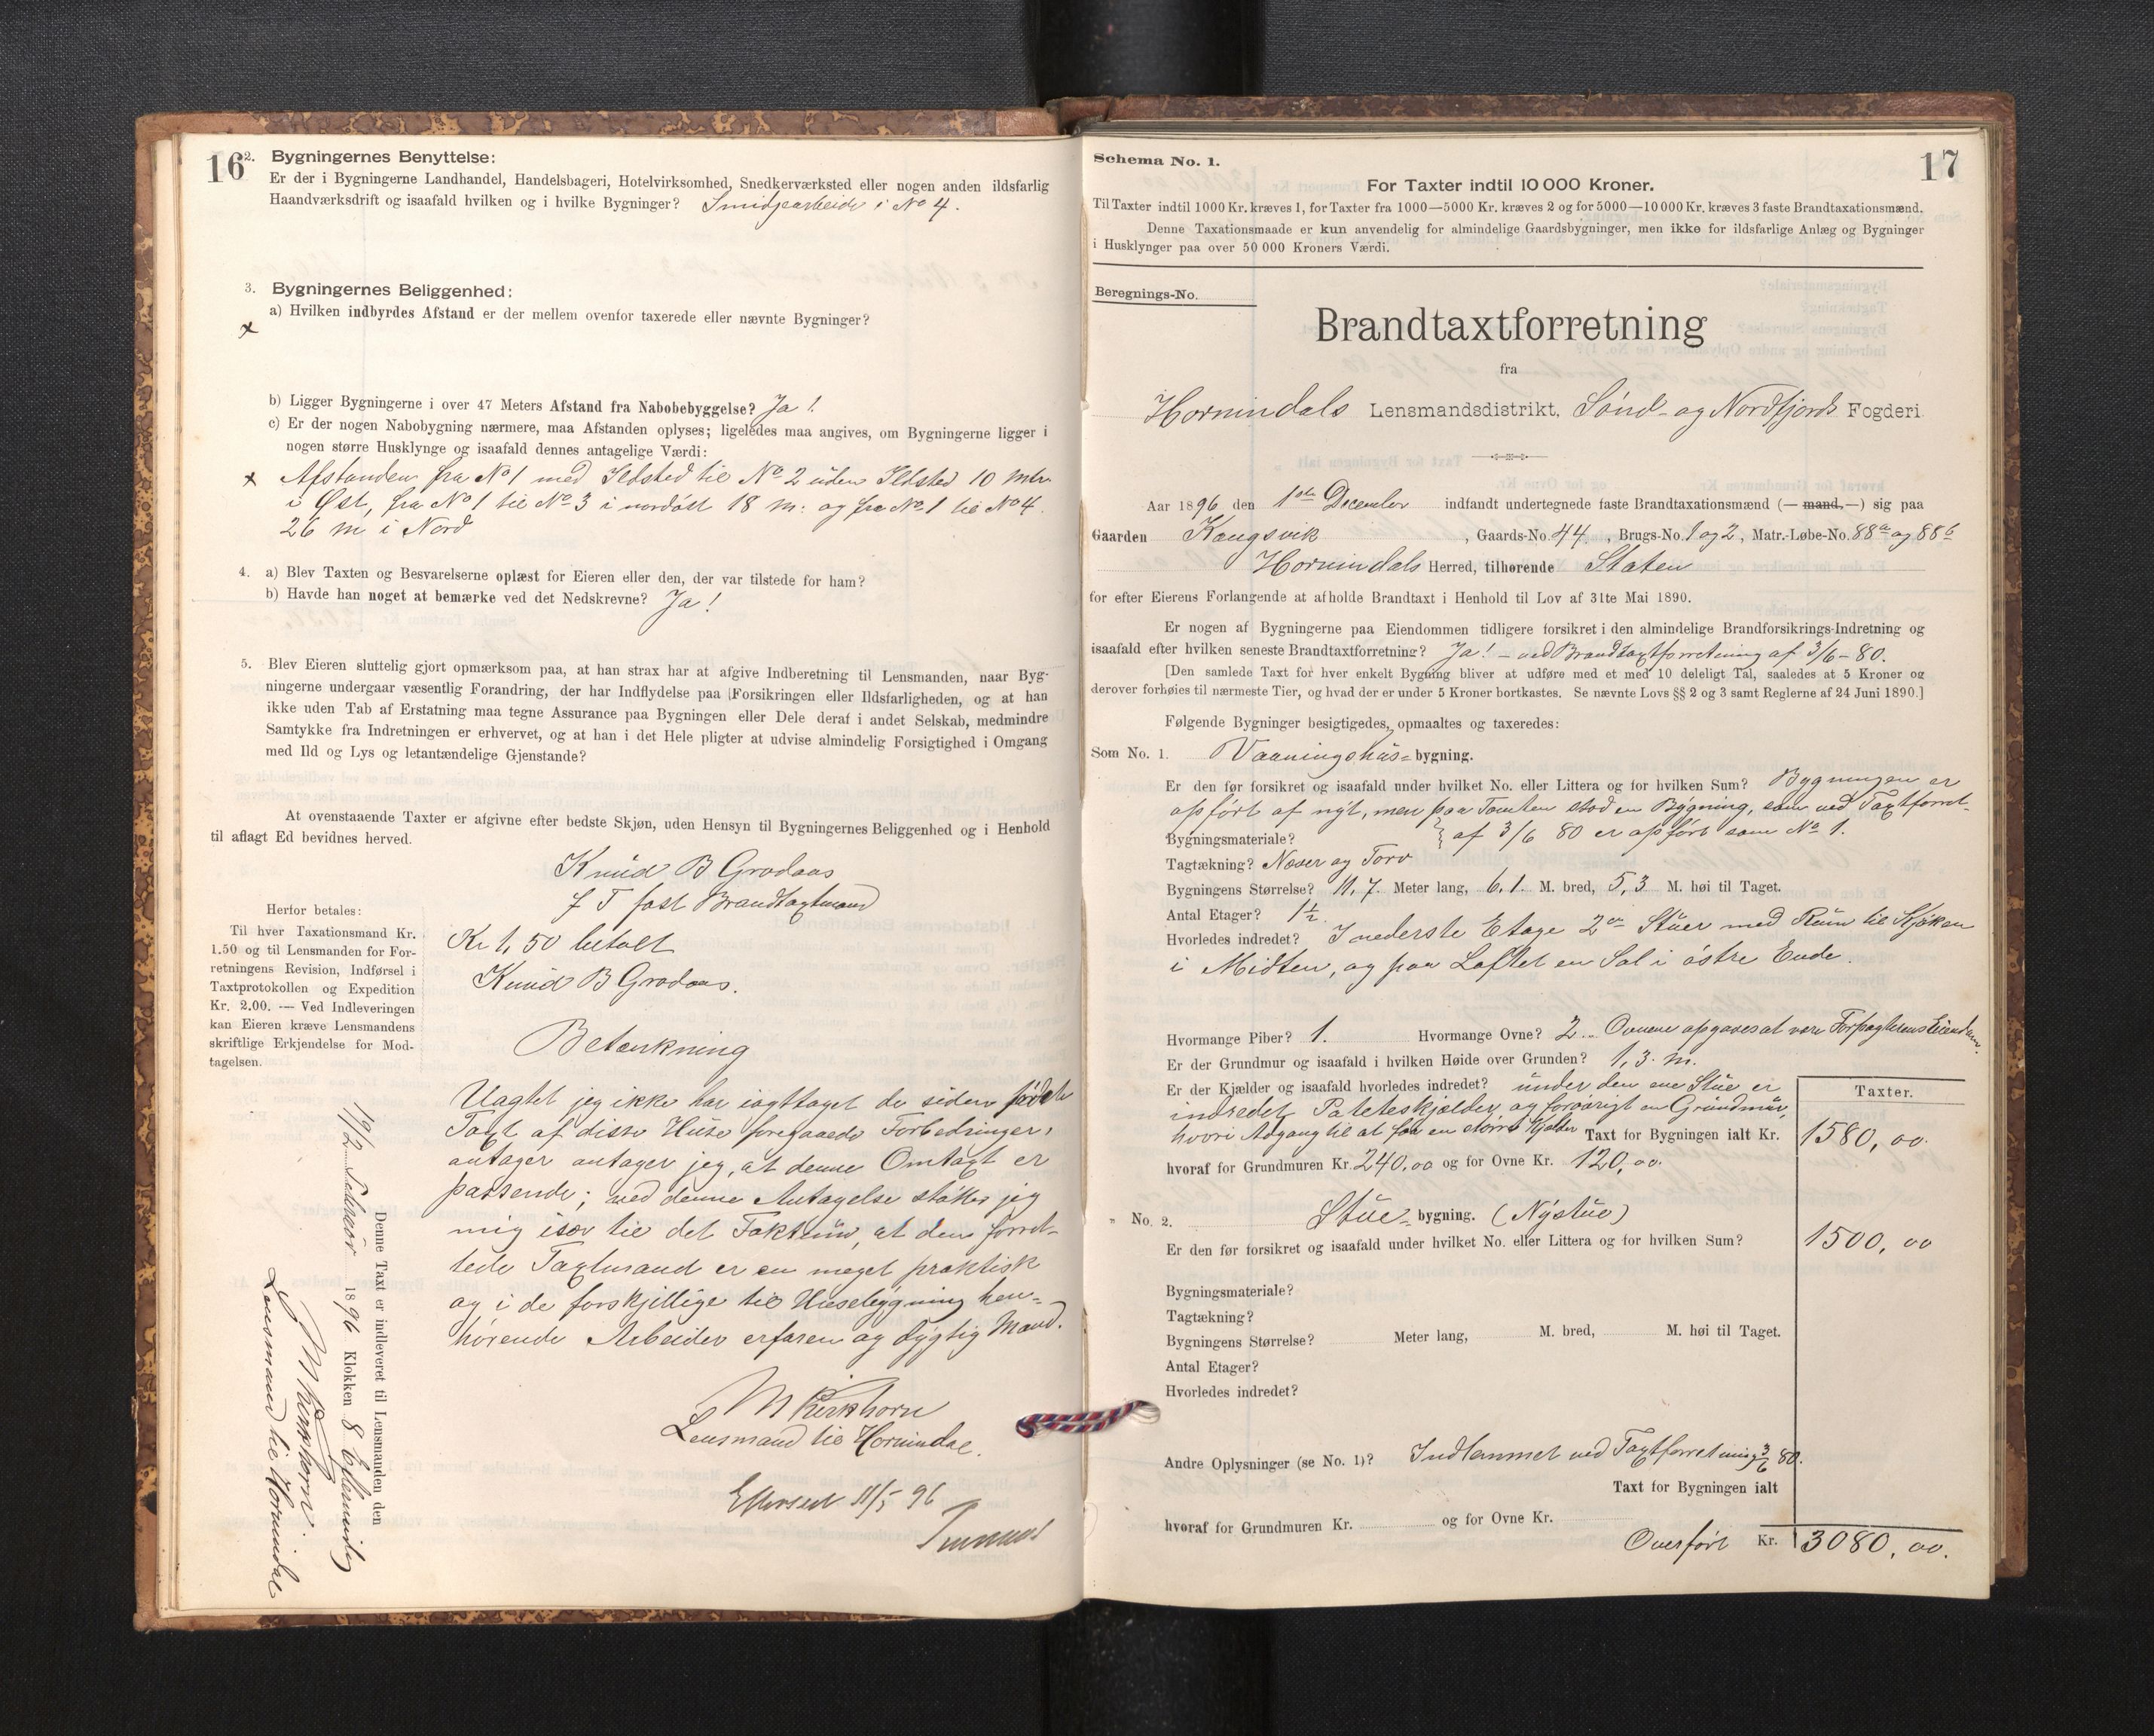 16
2. Bygningernes Benyttelse:
Er der i Bygningerne Landhandel, Handelsbageri, Hotelvirksomhed, Snedkerværksted eller nogen anden ildsfarlig
Haandværksdrift og isaafald hvilken og i hvilke Bygninger? Smidjearbeide i No 4.
3. Bygningernes Beliggenhed:
a) Hvilken indbyrdes Afstand er der mellem ovenfor taxerede eller nævnte Bygninger?
x
b) Ligger Bygningerne i over 47 Meters Afstand fra Nabobebyggelse? Ja!
c) Er der nogen Nabobygning nærmere, maa Afstanden oplyses; ligeledes maa angives, om Bygningerne ligger i
nogen større Husklynge og isaafald dennes antagelige Værdi:
x Afstanden fra No 1 med Ildsted til No 2 uden Ildsted 10 mtr
i Øst, fra No 1 til No 3 i nordøst 18 m: og fra No 1 til No 4
26 m i Nord
4. a) Blev Taxten og Besvarelserne oplæst for Eieren eller den, der var tilstede for ham?
b) Havde han noget at bemærke ved det Nedskrevne? Ja!
5. Blev Eieren sluttelig gjort opmærksom paa, at han strax har at afgive Indberetning til Lensmanden, naar Byg-
ningerne undergaar væsentlig Forandring, der har Indflydelse paa Forsikringen eller Ildsfarligheden, og at han
ikke uden Tab af Erstatning maa tegne Assurance paa Bygningen eller Dele deraf i andet Selskab, medmindre
Samtykke fra Indretningen er erhvervet, og at han i det Hele pligter at udvise almindelig Forsigtighed i Omgang
med Ild og Lys og letantændelige Gjenstande?
At ovenstaaende Taxter er afgivne efter bedste Skjøn, uden Hensyn til Bygningernes Beliggenhed og i Henhold
til aflagt Ed bevidnes herved.
Knud B Grodaas
f T fast Brandtaxtmand
Herfor betales:
Til hver Taxationsmand Kr.
1.50 og til Lensmanden for For-
retningens Revision, Indførsel i
Taxtprotokollen og Expedition
Kr. 2.00. — Ved Indleveringen
kan Eieren kræve Lensmandens
skriftlige Erkjendelse for Mod-
tagelsen.
Kr 1,50 betalt
Knud B Grodaas.
Betænkning
Uagtet jeg ikke har iagttaget de siden
Taxt af disse Huse foregaaede Forbedringer,
antager antager jeg, at denne Omtaxt er
passende; ved denne Antagelse støtter jeg
mig især til det Faktum, at den forret-
tede Taxtmand er en meget praktisk
og i de forskjellige til Husebygning hen-
hørende Arbeider erfaren og dygtig Mand.
M Kirkhorn
Lensmand til Hornindal.
Efterseet 11/5 96
Denne Taxt er indleveret til Lensmanden den
19/2 Februar 1896 Klokken 8 Eftermiddag
M Kirkhorn.
Lensmand til Hornindal
17
Schema No. 1.
For Taxter indtil 10 000 Kroner.
Til Taxter indtil 1000 Kr. kræves 1, for Taxter fra 1000—5000 Kr. kræves 2 og for 5000—10 000 Kr. kræves 3 faste Brandtaxationsmænd.
Denne Taxationsmaade er kun anvendelig for almindelige Gaardsbygninger, men ikke for ildsfarlige Anlæg og Bygninger
i Husklynger paa over 50 000 Kroners Værdi.
Beregnings-No.
Brandtaxtforretning
fra
Hornindals Lensmandsdistrikt, Sønd- og Nordfjords Fogderi
Aar 1896 den 1ste December indfandt undertegnede faste Brandtaxationsmænd (— mand. —) sig paa
Gaarden Kongsvik, Gaards-No. 44, Brugs-No. 1 og 2, Matr.-Løbe-No. 88a og 88b
Hornindals Herred, tilhørende Staten
for efter Eierens Forlangende at afholde Brandtaxt i Henhold til Lov af 31te Mai 1890.
Er nogen af Bygningerne paa Eiendommen tidligere forsikret i den almindelige Brandforsikrings-Indretning og
isaafald efter hvilken seneste Brandtaxtforretning? Ja! — ved Brandtaxtforretning af 3/6 - 80.
[Den samlede Taxt for hver enkelt Bygning bliver at udføre med et med 10 deleligt Tal, saaledes at 5 Kroner og
derover forhøies til nærmeste Tier, og hvad der er under 5 Kroner bortkastes. Se nævnte Lovs §§ 2 og 3 samt Reglerne af 24 Juni 1890.]
Følgende Bygninger besigtigedes, opmaaltes og taxeredes:
Som No. 1. Vaaningshus- bygning.
Er den før forsikret og isaafald under hvilket No. eller Littera og for hvilken Sum? Bygningen er
opført af nyt, men paa Tomten stod en Bygning, som ved Taxtforret-
Bygningsmateriale? af 3/6 80 er opført som No 1.
Tagtækning? Næver og Torv
Bygningens Størrelse? 11,7. Meter lang, 6,1. M. bred, 5,3 M. høi til Taget.
Antal Etager? 1½.
Hvorledes indredet? I nederste Etage 2de Stuer med Rum til Kjøken
i Midten, og paa Loftet en Sal i østre Ende.
Hvormange Piber? 1. Hvormange Ovne? 2. Ovnene opgaves at være Forpagterens Eiendom.
Er der Grundmur og isaafald i hvilken Høide over Grunden? 1,3. m.
Er der Kjælder og isaafald hvorledes indredet? under den ene Stue er
indredet Poteteskjælder og forøvrigt en Grundmur,
hvori Adgang til at faa en større Kjælder Taxt for Bygningen ialt Kr.
Taxter.
1580,00.
hvoraf for Grundmuren Kr. 240,00 og for Ovne Kr. 120,00.
" No. 2. Stue- bygning. (Nystue)
Er den før forsikret og isaafald under hvilket No. eller Littera og for hvilken Sum? 1500,00
Bygningsmateriale?
Tagtækning?
Bygningens Størrelse? Meter lang, M. bred, M. høi til Taget.
Antal Etager?
Hvorledes indredet?
Andre Oplysninger (se No. 1)? Indlemmet ved Taxtforretning 3/6 80.
Taxt for Bygningen ialt
hvoraf for Grundmuren Kr. og for Ovne Kr.
Overført Kr. 3080,00.